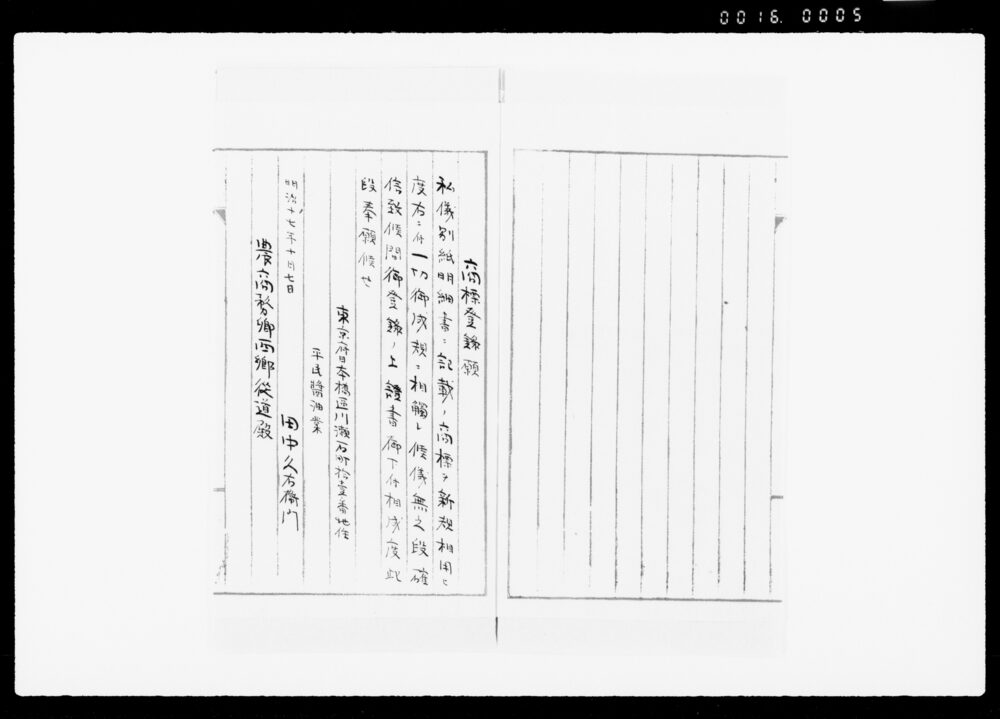 0016. 0005
商標登録願
私儀別紙明細書ニ記載ノ商標ヲ新規相用ヒ
度右ニ付一切御成規ニ相觸レ候儀無之段確
信致候間御登録ノ上證書御下付相成度此
段奉願候也
東京府日本橋區川瀬石町拾壹番地住
平民醬油業
田中久右衛門
明治十七年十月七日
農商務卿西郷從道殿